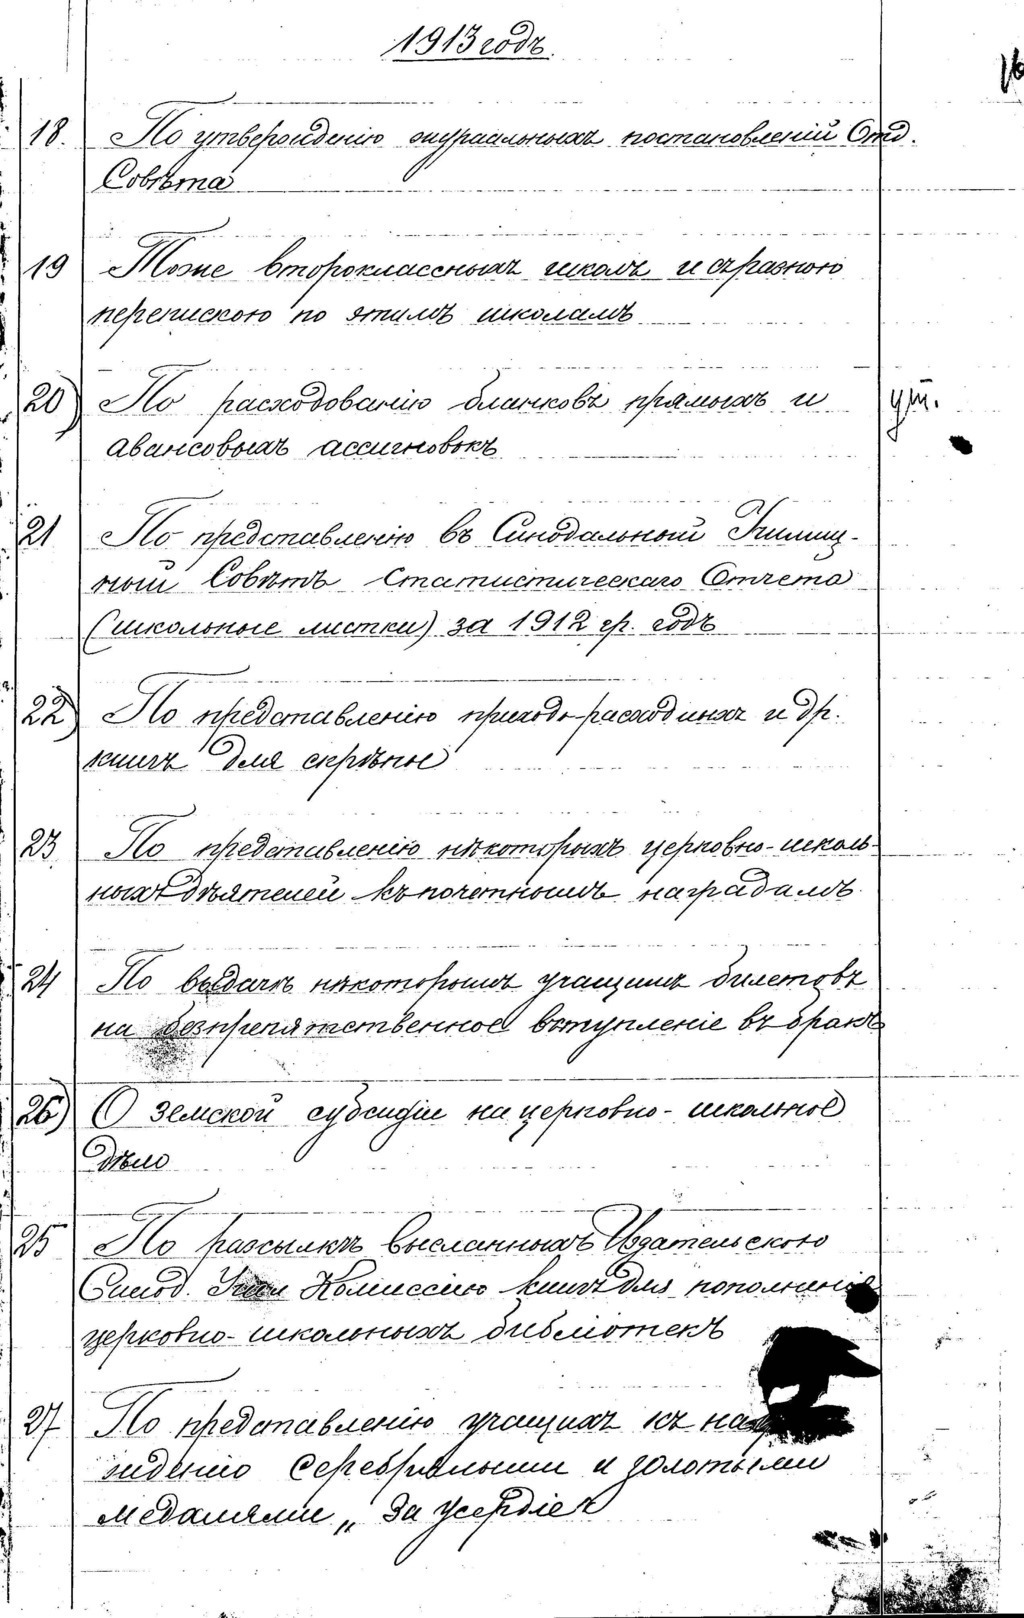 1913 годъ.
18. По утвержденію журнальныхъ постановленій Отд.
Совѣта
19 Тоже второклассныхъ школъ и съ разною
перепискою по этимъ школамъ
20) По расходованію бланковъ прямыхъ и
авансовыхъ ассигновокъ
ут.
21 По представленію въ Синодальный Училищ-
ный Совѣтъ Статистическаго Отчета
(школьные листки) за 1912 гр. годъ
22) По представленію приходо-расходныхъ и др.
книгъ для скрѣпы
23 По представленію нѣкоторыхъ церковно-школь-
ныхъ дѣятелей къ почетнымъ наградамъ.
24 По выдачѣ нѣкоторымъ учащимъ билетовъ
на безпрепятственное вступленіе въ бракъ
26) О земской субсидіи на церковно-школьное
дѣло
25 По разсылкѣ высланныхъ Издательскою
Синод. Учил Комиссіею книгъ для пополненія
церковно-школьныхъ библіотекъ
27 По представленію учащихъ къ награ
жденію серебряными и золотыми
медалями „За усердіе"